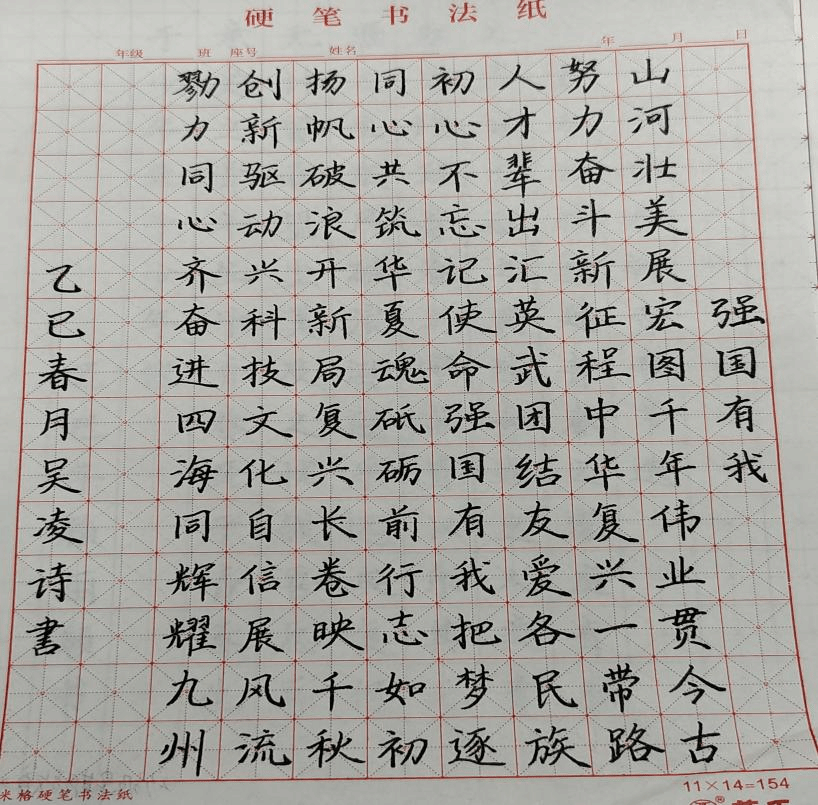 硬笔书法纸
年级 班 座号 姓名 年 月 日
强国有我
山河壮美展宏图千年伟业贯今古
努力奋斗新征程中华复兴一带路
人才辈出汇英武团结友爱各民族
初心不忘记使命强国有我把梦逐
同心共筑华夏魂砥砺前行志如初
扬帆破浪开新局复兴长卷映千秋
创新驱动兴科技文化自信展风流
勠力同心齐奋进四海同辉耀九州
乙巳春月吴凌诗書
米格硬笔书法纸
11×14=154